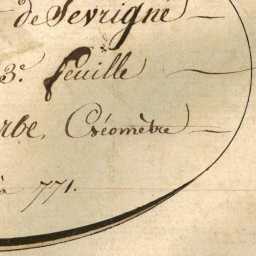 de Sevrigné
3e. feuille
rbe, Géomètre
à 771.